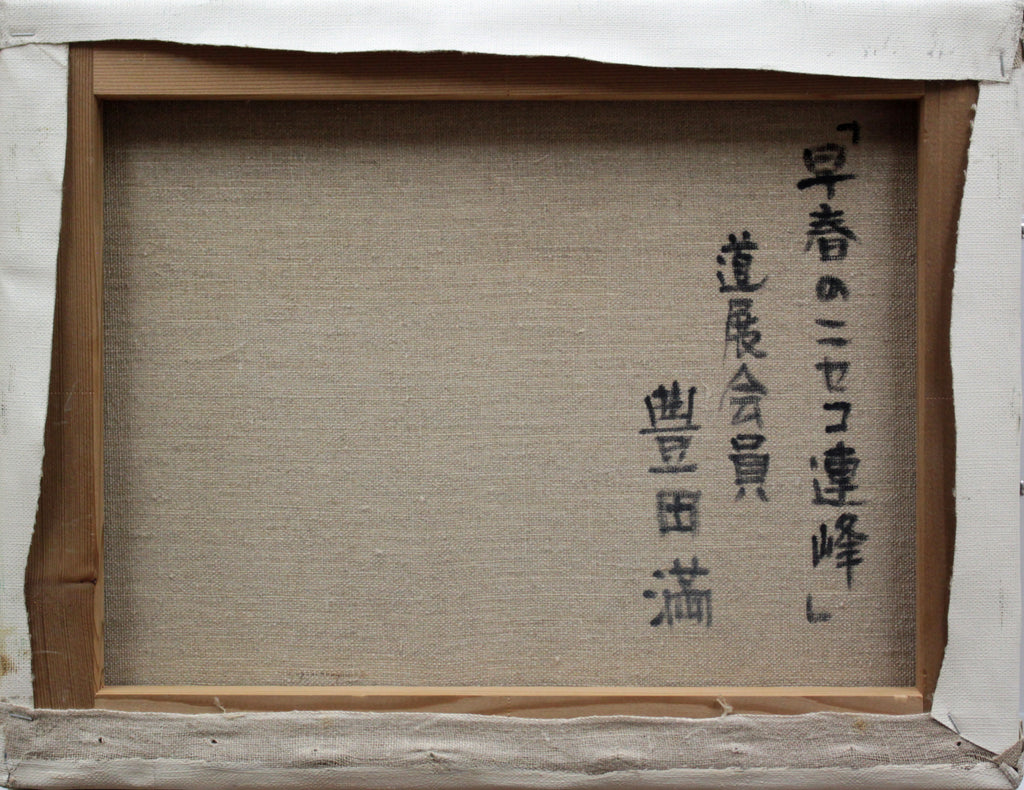 「早春のニセコ連峰」
道展会員
豊田満